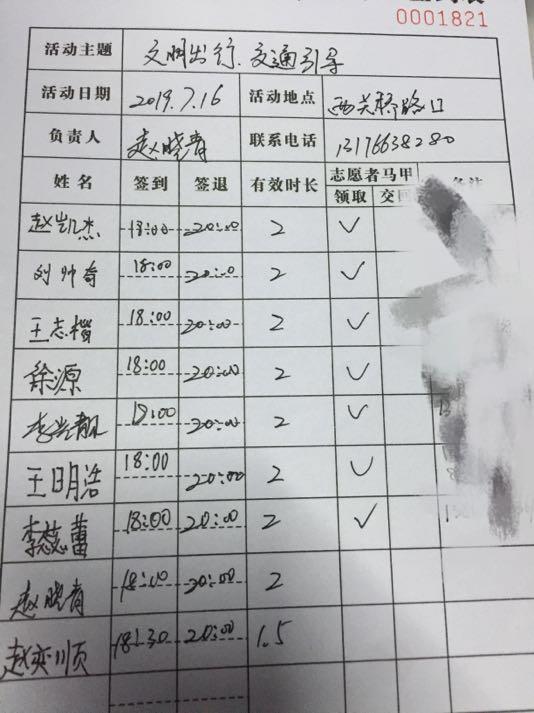 0001821
活动主题 文明出行、交通引导
活动日期 2019.7.16 活动地点 西关桥路口
负责人 赵晓青 联系电话 13176638280
姓名 签到 签退 有效时长 志愿者马甲 备注
领取 交回
赵凯杰 18:00 20:00 2 ✓
刘帅奇 18:00 20:00 2 ✓
王志楷 18:00 20:00 2 ✓
徐源 18:00 20:00 2 ✓
18:00 20:00 2 ✓
王明浩 18:00 20:00 2 ✓
李蕊蕾 18:00 20:00 2 ✓
赵晓青 18:00 20:00 2
赵奕顺 18:30 20:00 1.5